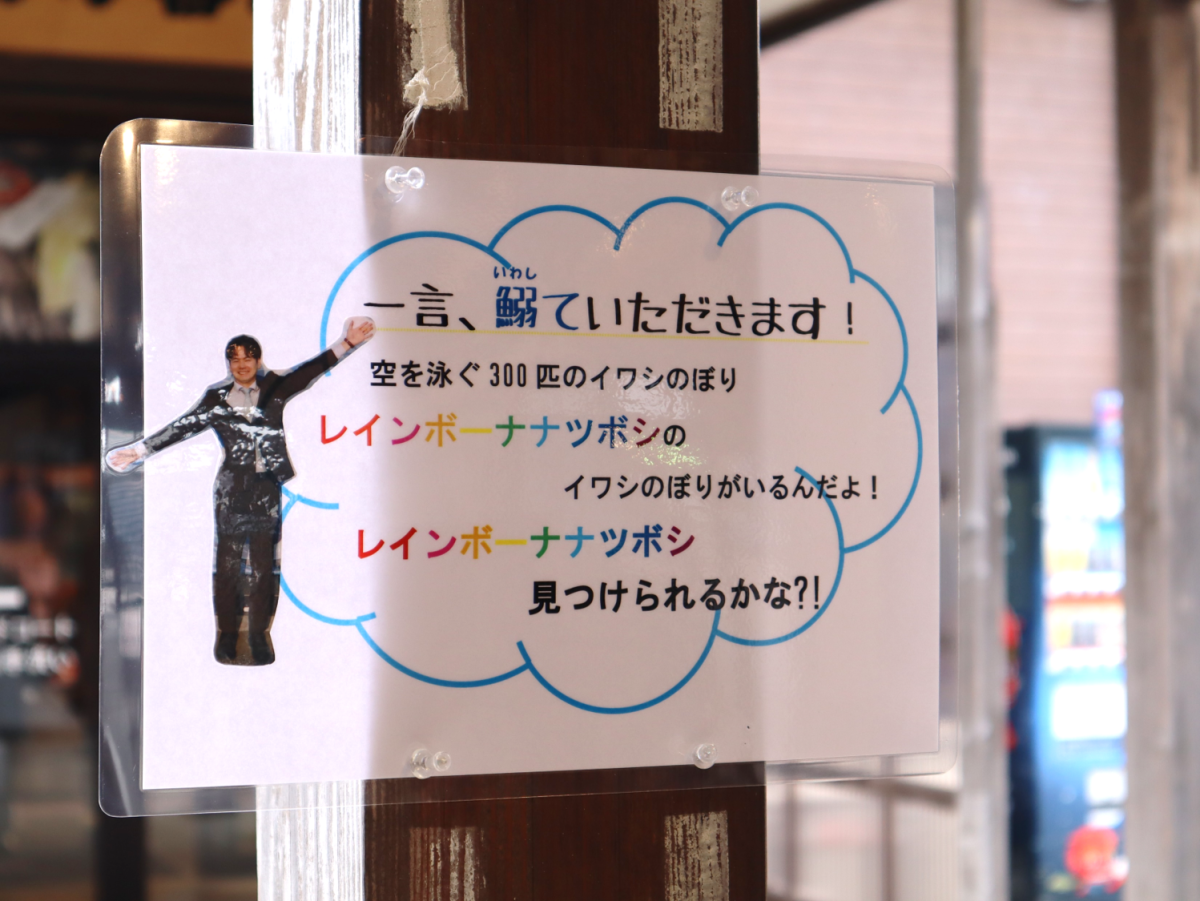 いわし
一言、鰯ていただきます！
空を泳ぐ300匹のイワシのぼり
レインボーナナツボシの
イワシのぼりがいるんだよ！
レインボーナナツボシ
見つけられるかな?!